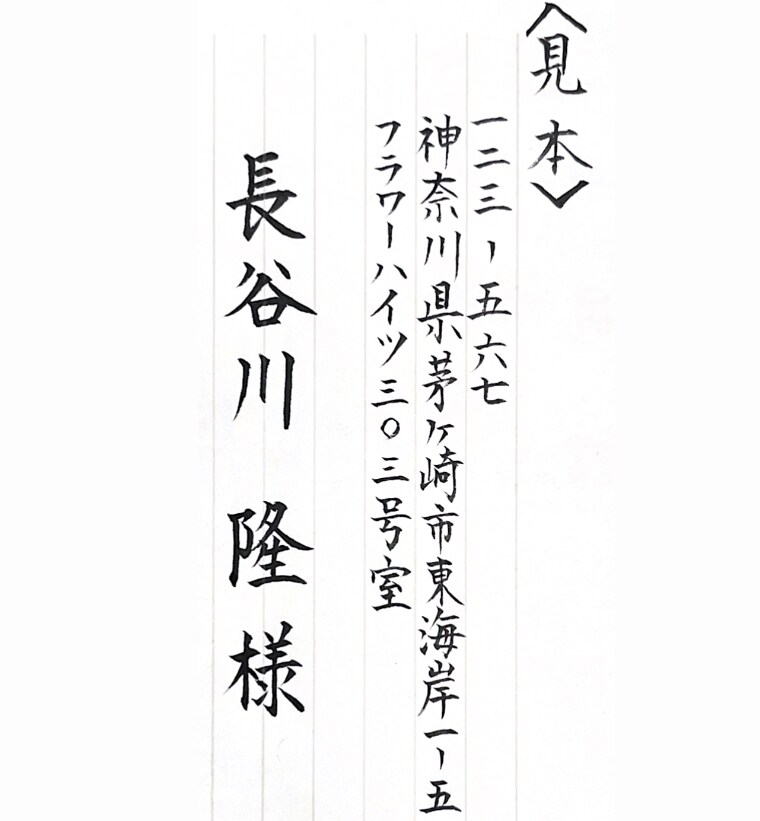 〈見本〉
一二三ー五六七
神奈川県茅ヶ崎市東海岸一ー五
フラワーハイツ三〇三号室
長谷川 隆 様